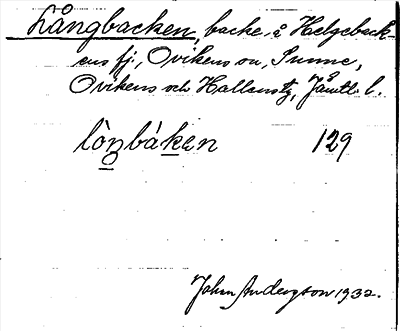 Långbacken, backe å Helgeback-
ens fj., Ovikens sn, Sunne,
Ovikens och Hallens tg, Jämtl. l.
lòŋbáken 129
John Anderson 1932.